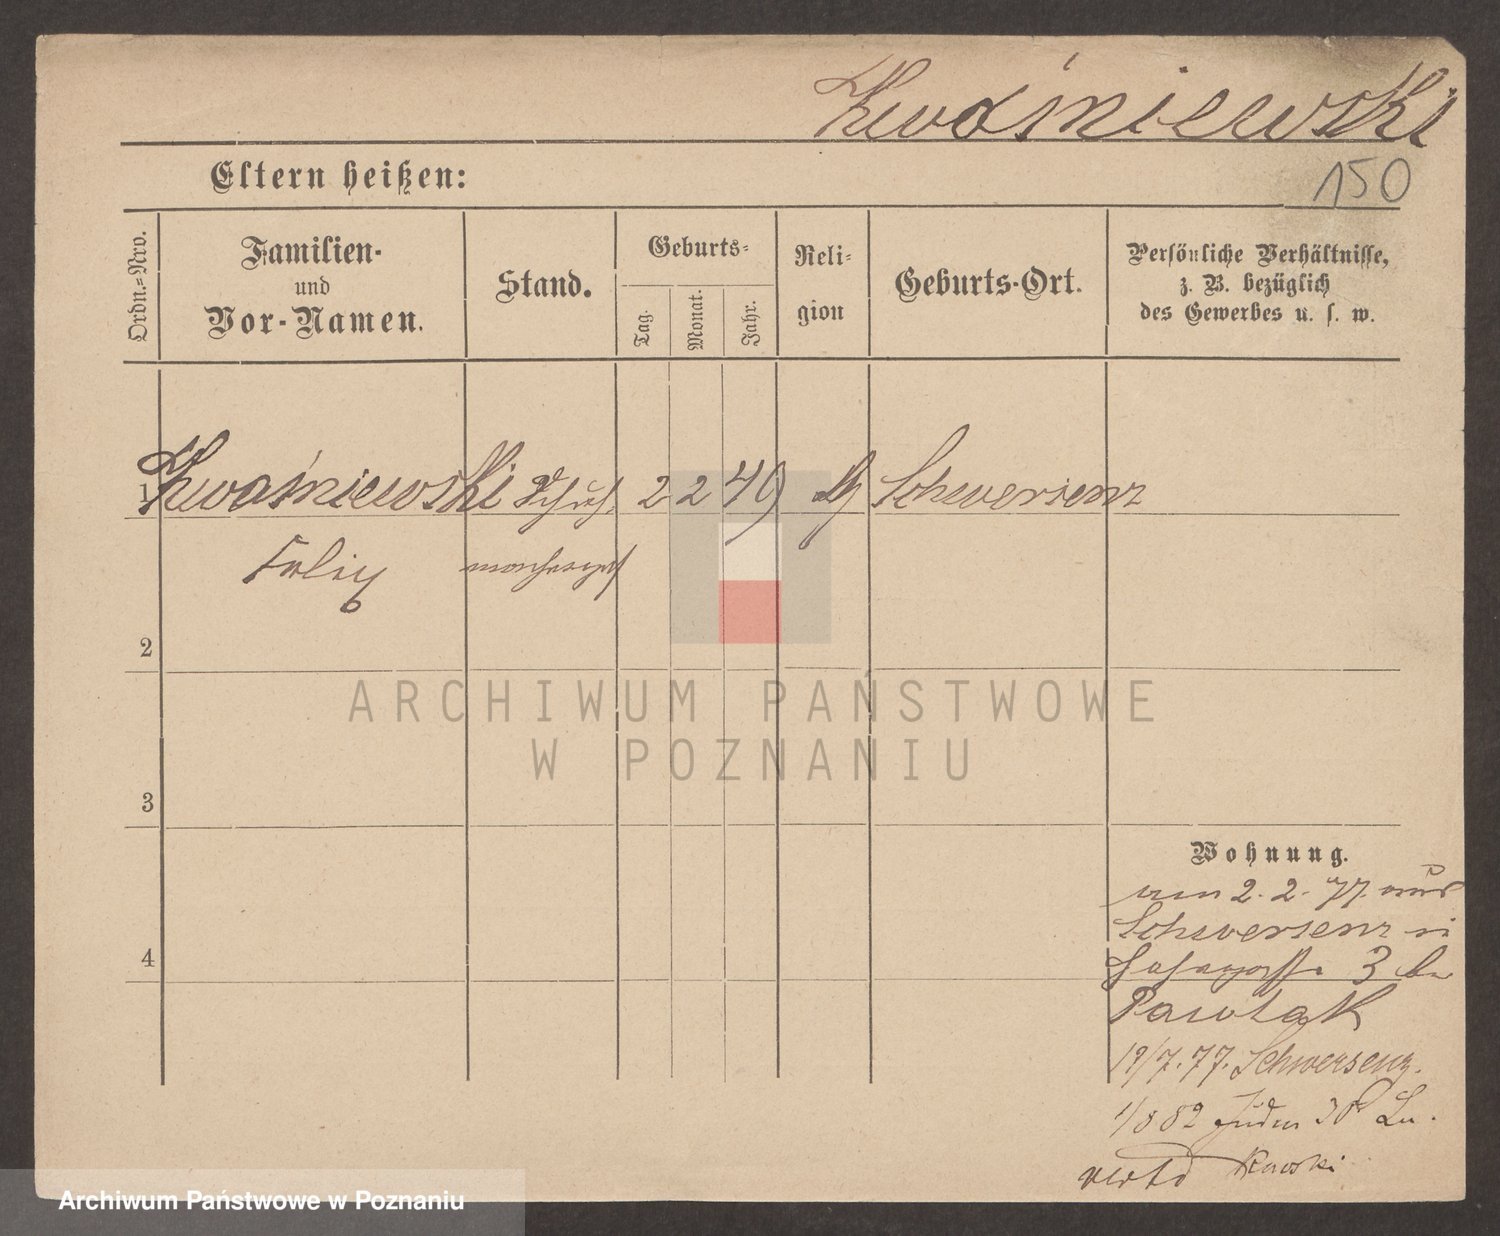 Kwaśniewski
Eltern heißen:
150
Ordn.-Nro.
Familien-
und
Vor-Namen.
Stand.
Geburts-
Tag.
Monat.
Jahr.
Reli-
gion
Geburts-Ort.
Persönliche Verhältnisse,
z. B. bezüglich
des Gewerbes u. s. w.
1 Kwaśniewski Schuh 2 2 49 Schwersenz
Felix
2
3
4
ARCHIWUM PAŃSTWOWE
W POZNANIU
Wohnung.
am 2.2.77. aus
Schwersenz
3
Pawlak
19/7.77. Schwersenz.
1/8 82 Juden
Archiwum Państwowe w Poznaniu